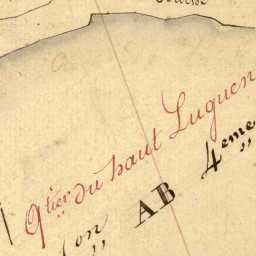 Qtier du haut Luguen
AB 4eme
on